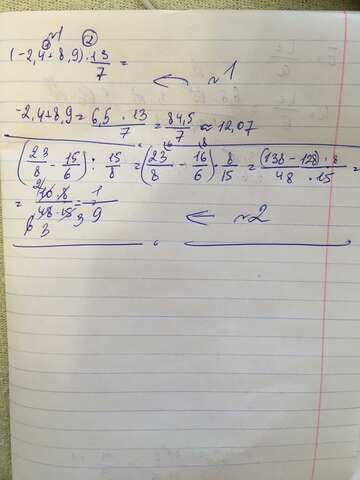 №1 ②
(-2,4+8,9)·13/7 =
← №1
-2,4+8,9 = 6,5 · 13/7 = 84,5/7 ≈ 12,07
(23/8 - 15/6) : 15/8 = (23/8 - 16/6) · 8/15 = (138 - 128) · 8/48 · 15 =
= 10 · 8/48 · 15 = 1/9
← №2